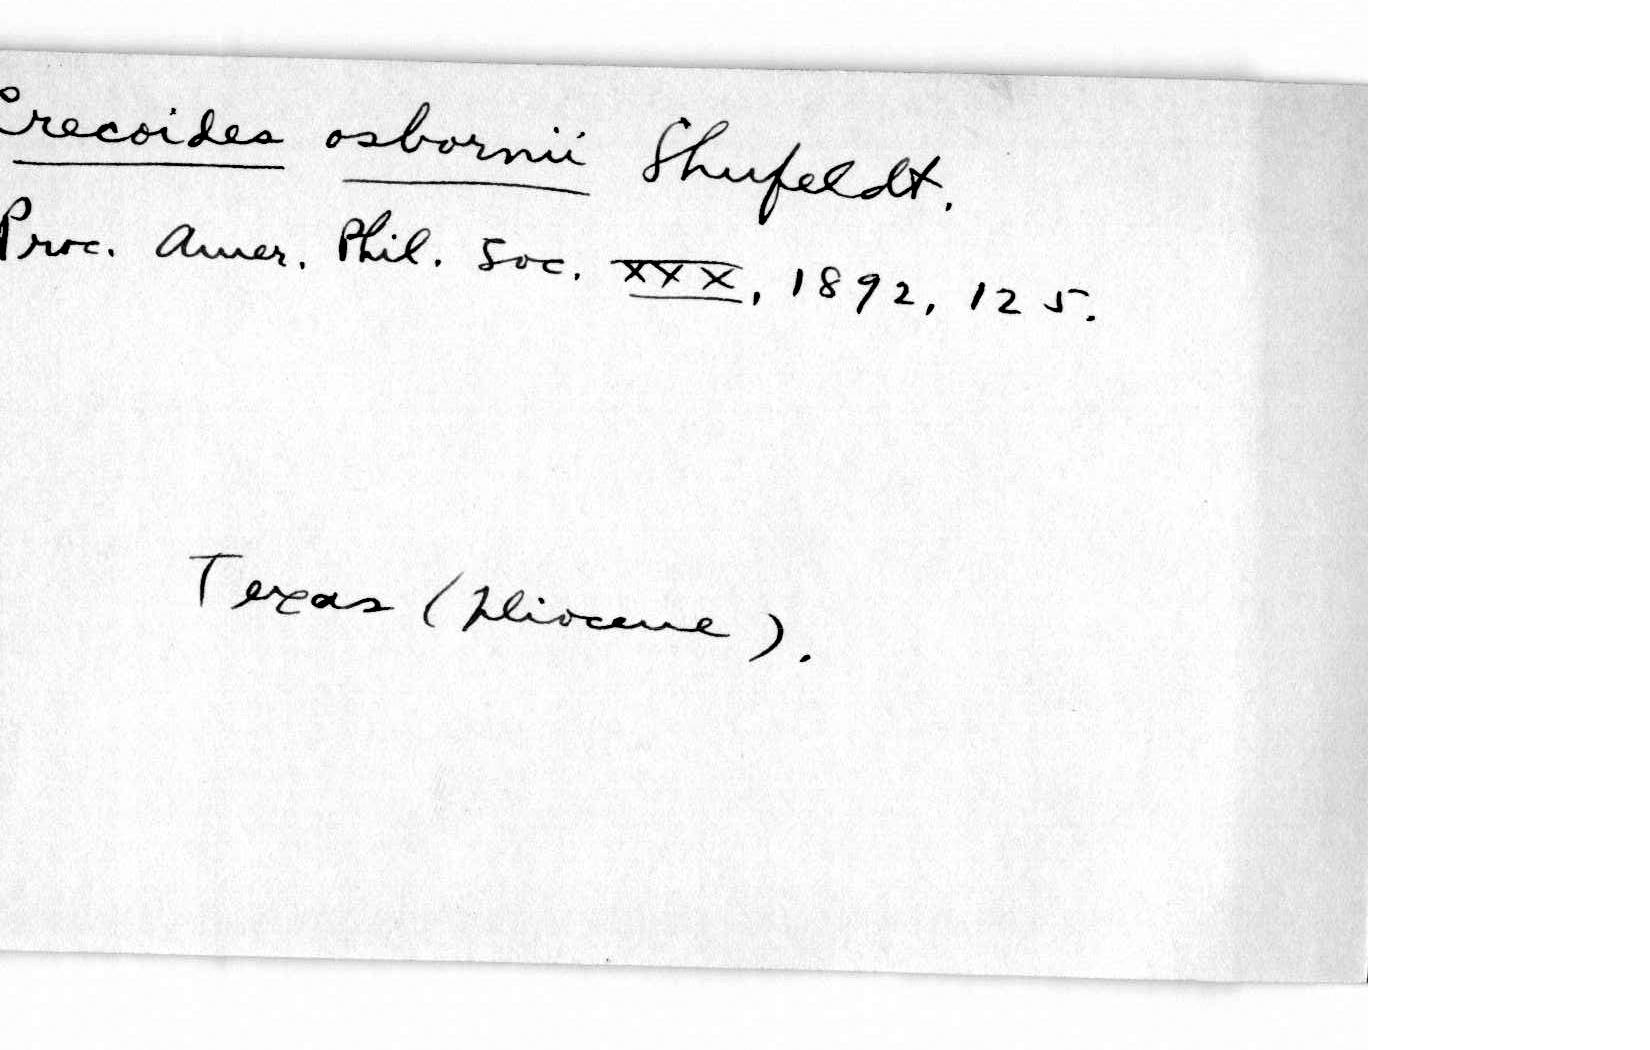 Crecoides osbornii Shufeldt.
Proc. Amer. Phil. Soc. XXX, 1892, 125.
Texas (pliocene).